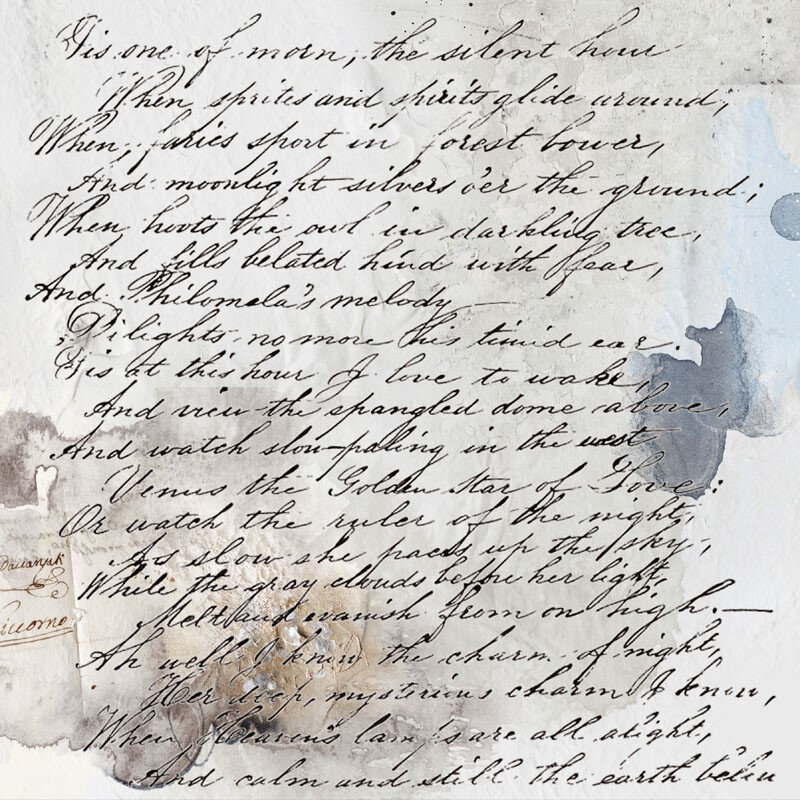 'Tis one of morn, the silent hour
When sprites and spirits glide around,
When faries sport in forest bower,
And moonlight silvers o'er the ground;
When hoots the owl in darkling tree,
And fills belated hind with fear,
And Philomela's melody
Dilights no more his timid ear.
'Tis at this hour I love to wake,
And view the spangled dome above,
And watch slow-paling in the west
Venus the Golden Star of Love:
Or watch the ruler of the night,
As slow she paces up the sky,
While the gray clouds before her light,
Melt and evanish from on high. —
Ah well I know the charm of night,
Her deep, mysterious charm I know,
When Heaven's lamps are all alight,
And calm and still the earth below